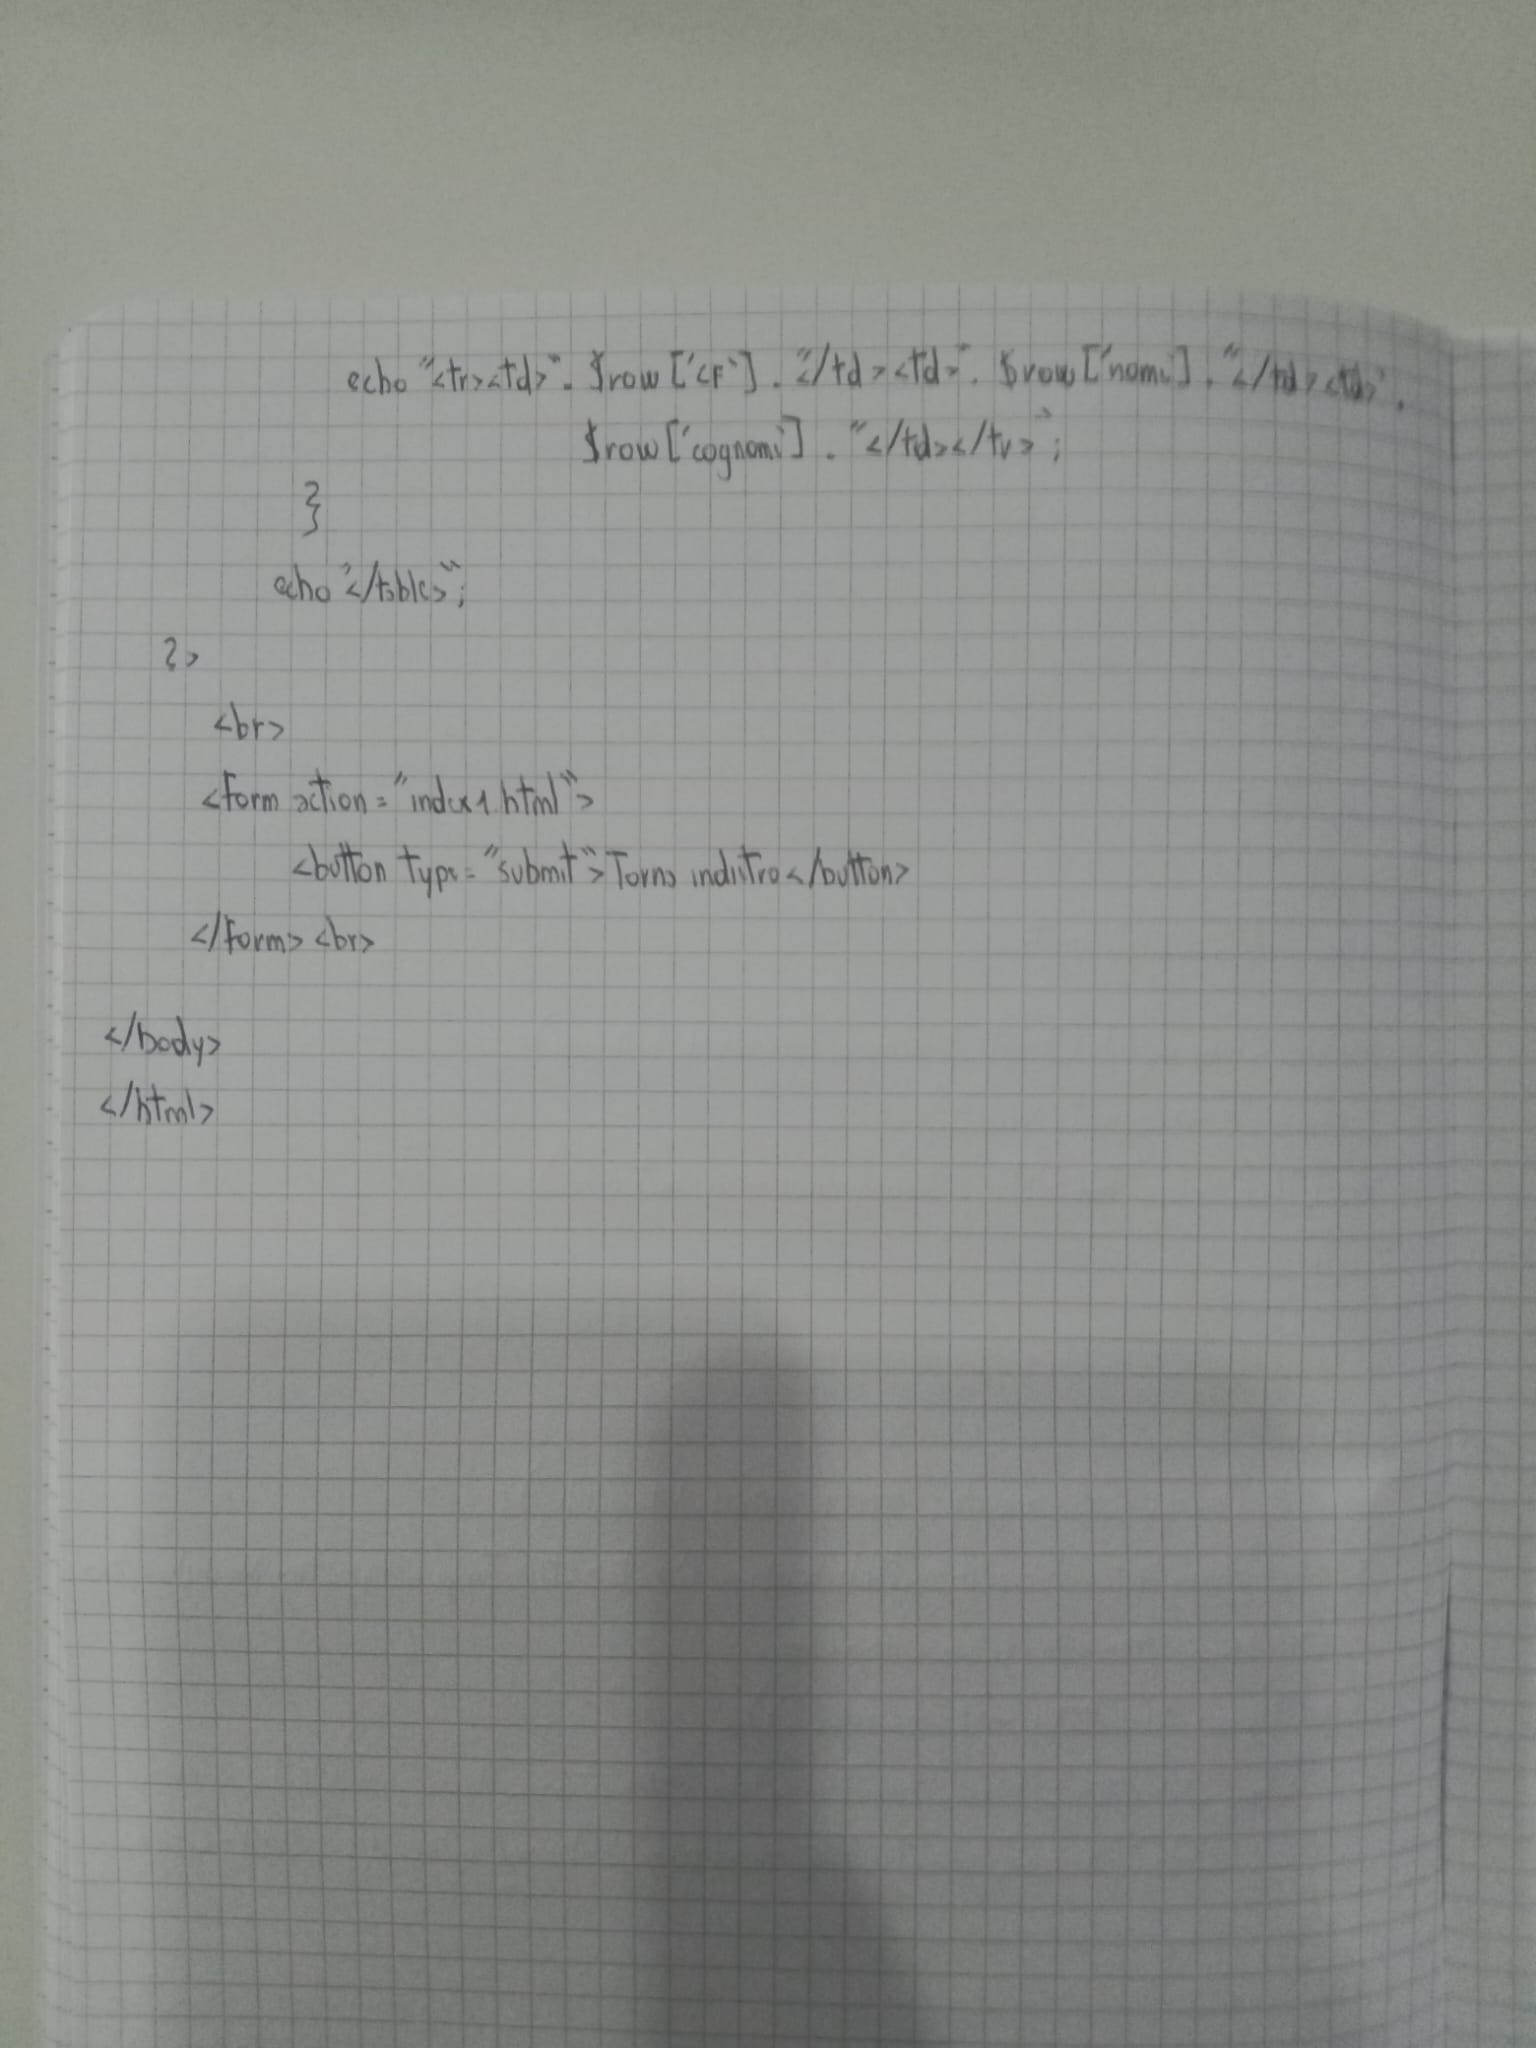 echo "<tr><td>". $row['CF'] . "</td><td>". $row['nome'] . "</td><td>".
$row['cognome'] . "</td></tr>";
}
echo "</table>";
?>
<br>
<form action="index1.html">
<button type="submit">Torna indietro</button>
</form><br>
</body>
</html>